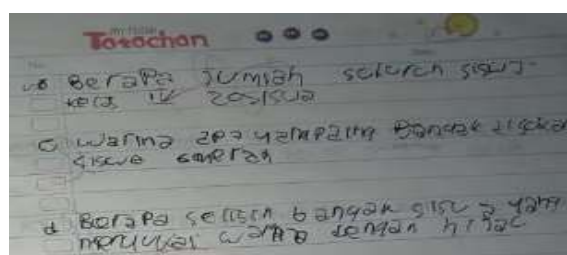 Totochan
b Berapa Jumlah seluruh siswa
kelas IV 20 siswa
c warna apa yang paling banyak disukai
siswa merah
d Berapa selisih banyak siswa yang
menyukai warna dengan hijau